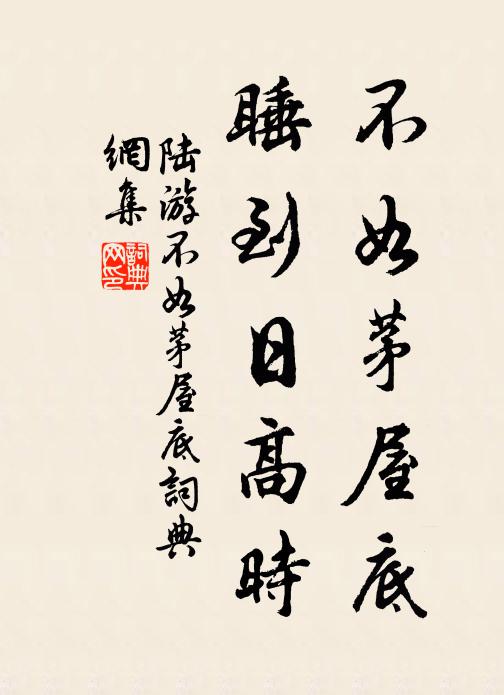 不如茅屋底
睡到日高時
陆游不如茅屋底詞典
網集
詞典
网印